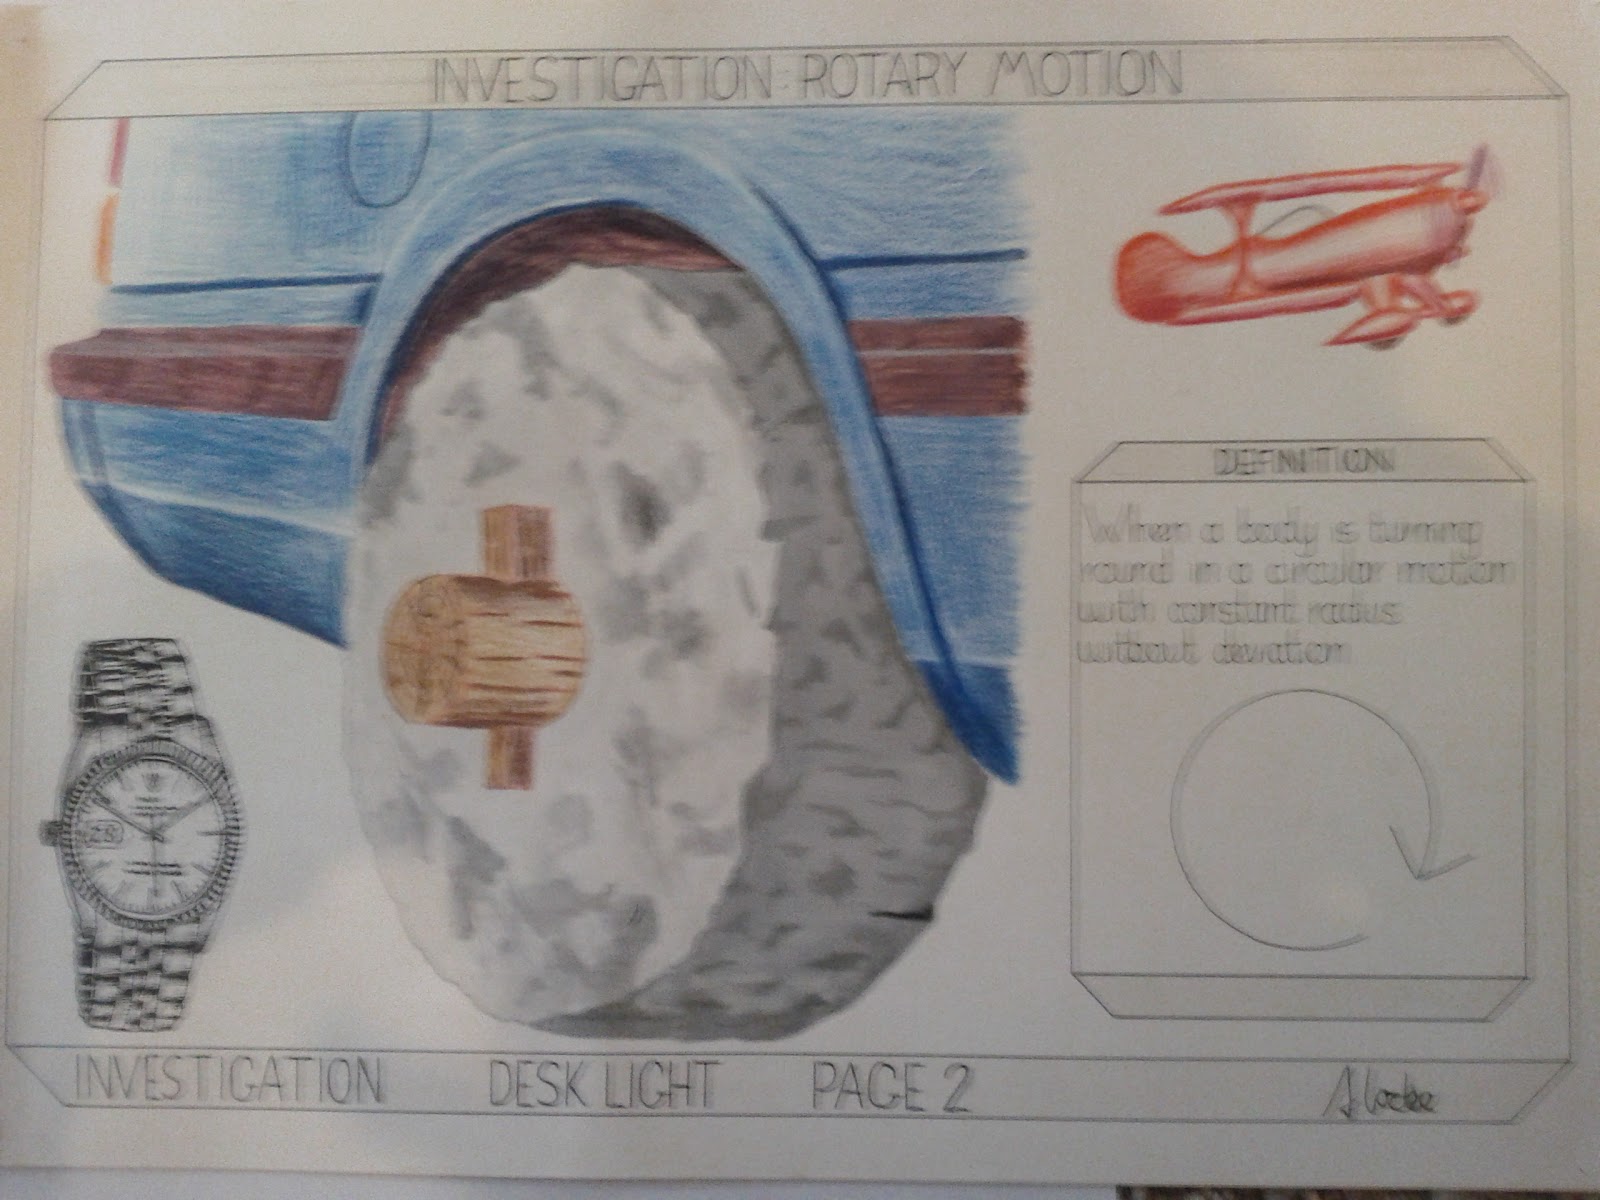 INVESTIGATION: ROTARY MOTION
DEFINITION
When a body is turning
round in a circular motion
with constant radius
without deviation
28
INVESTIGATION DESK LIGHT PAGE 2